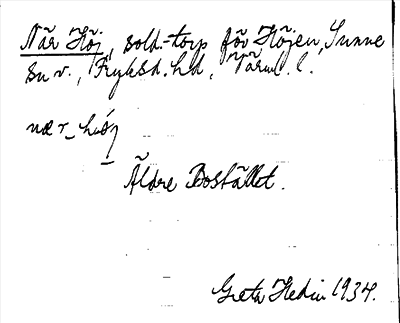 När Höj, sold.-torp för Höjen, Sunne
sn v., Fryksd. hd, Värml. l.
næ r_ hǿj
Äldre Bostället.
Greta Hedin 1934.